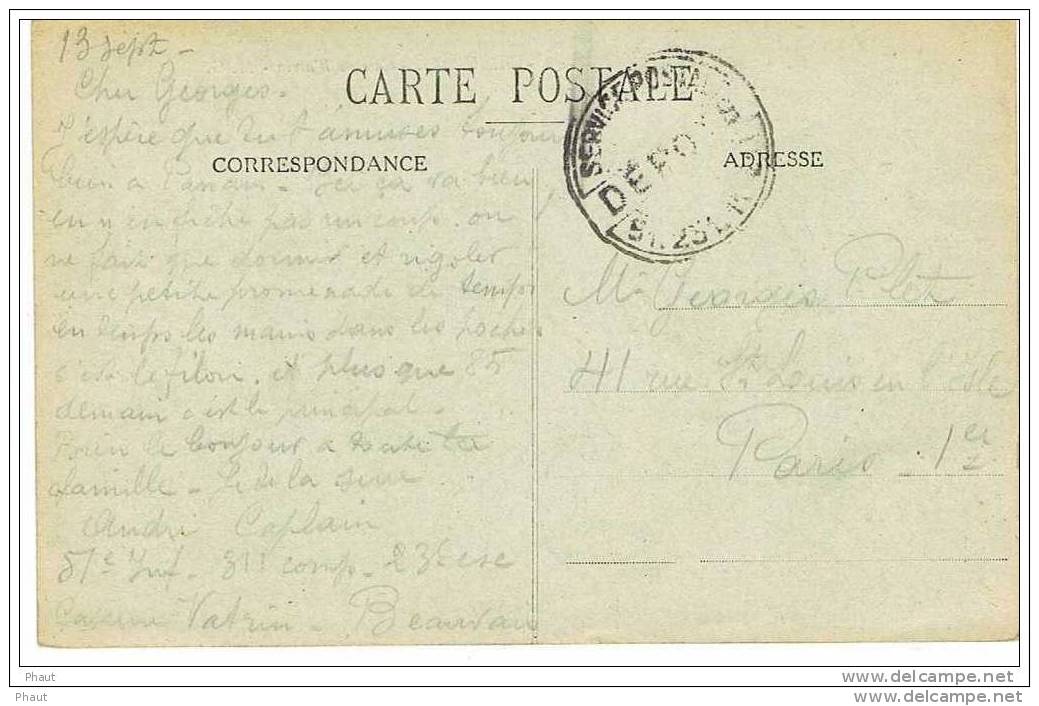 13 sept -
Cher Georges -
J'espère que tu t'amuses toujours
bien a Paname - Ici ça va bien
en n'en fiche pas un coup on
ne fait que dormir et rigoler
une petite promenade de temps
en temps les mains dans les poches
c'est le filon. et plus que 85
demain c'est le principal -
Bien le bonjour a toute ta
famille -
André Caplain
51e Inf - 311 comp - 23e esc
Caserne Vatrin - Beauvais
CARTE POSTALE
CORRESPONDANCE
ADRESSE
SERVICE POSTAL
DEPOT
51
Mr Georges
41 rue St Louis en l'isle
Paris - 1er
Phaut
www.delcampe.net
Phaut
www.delcampe.net